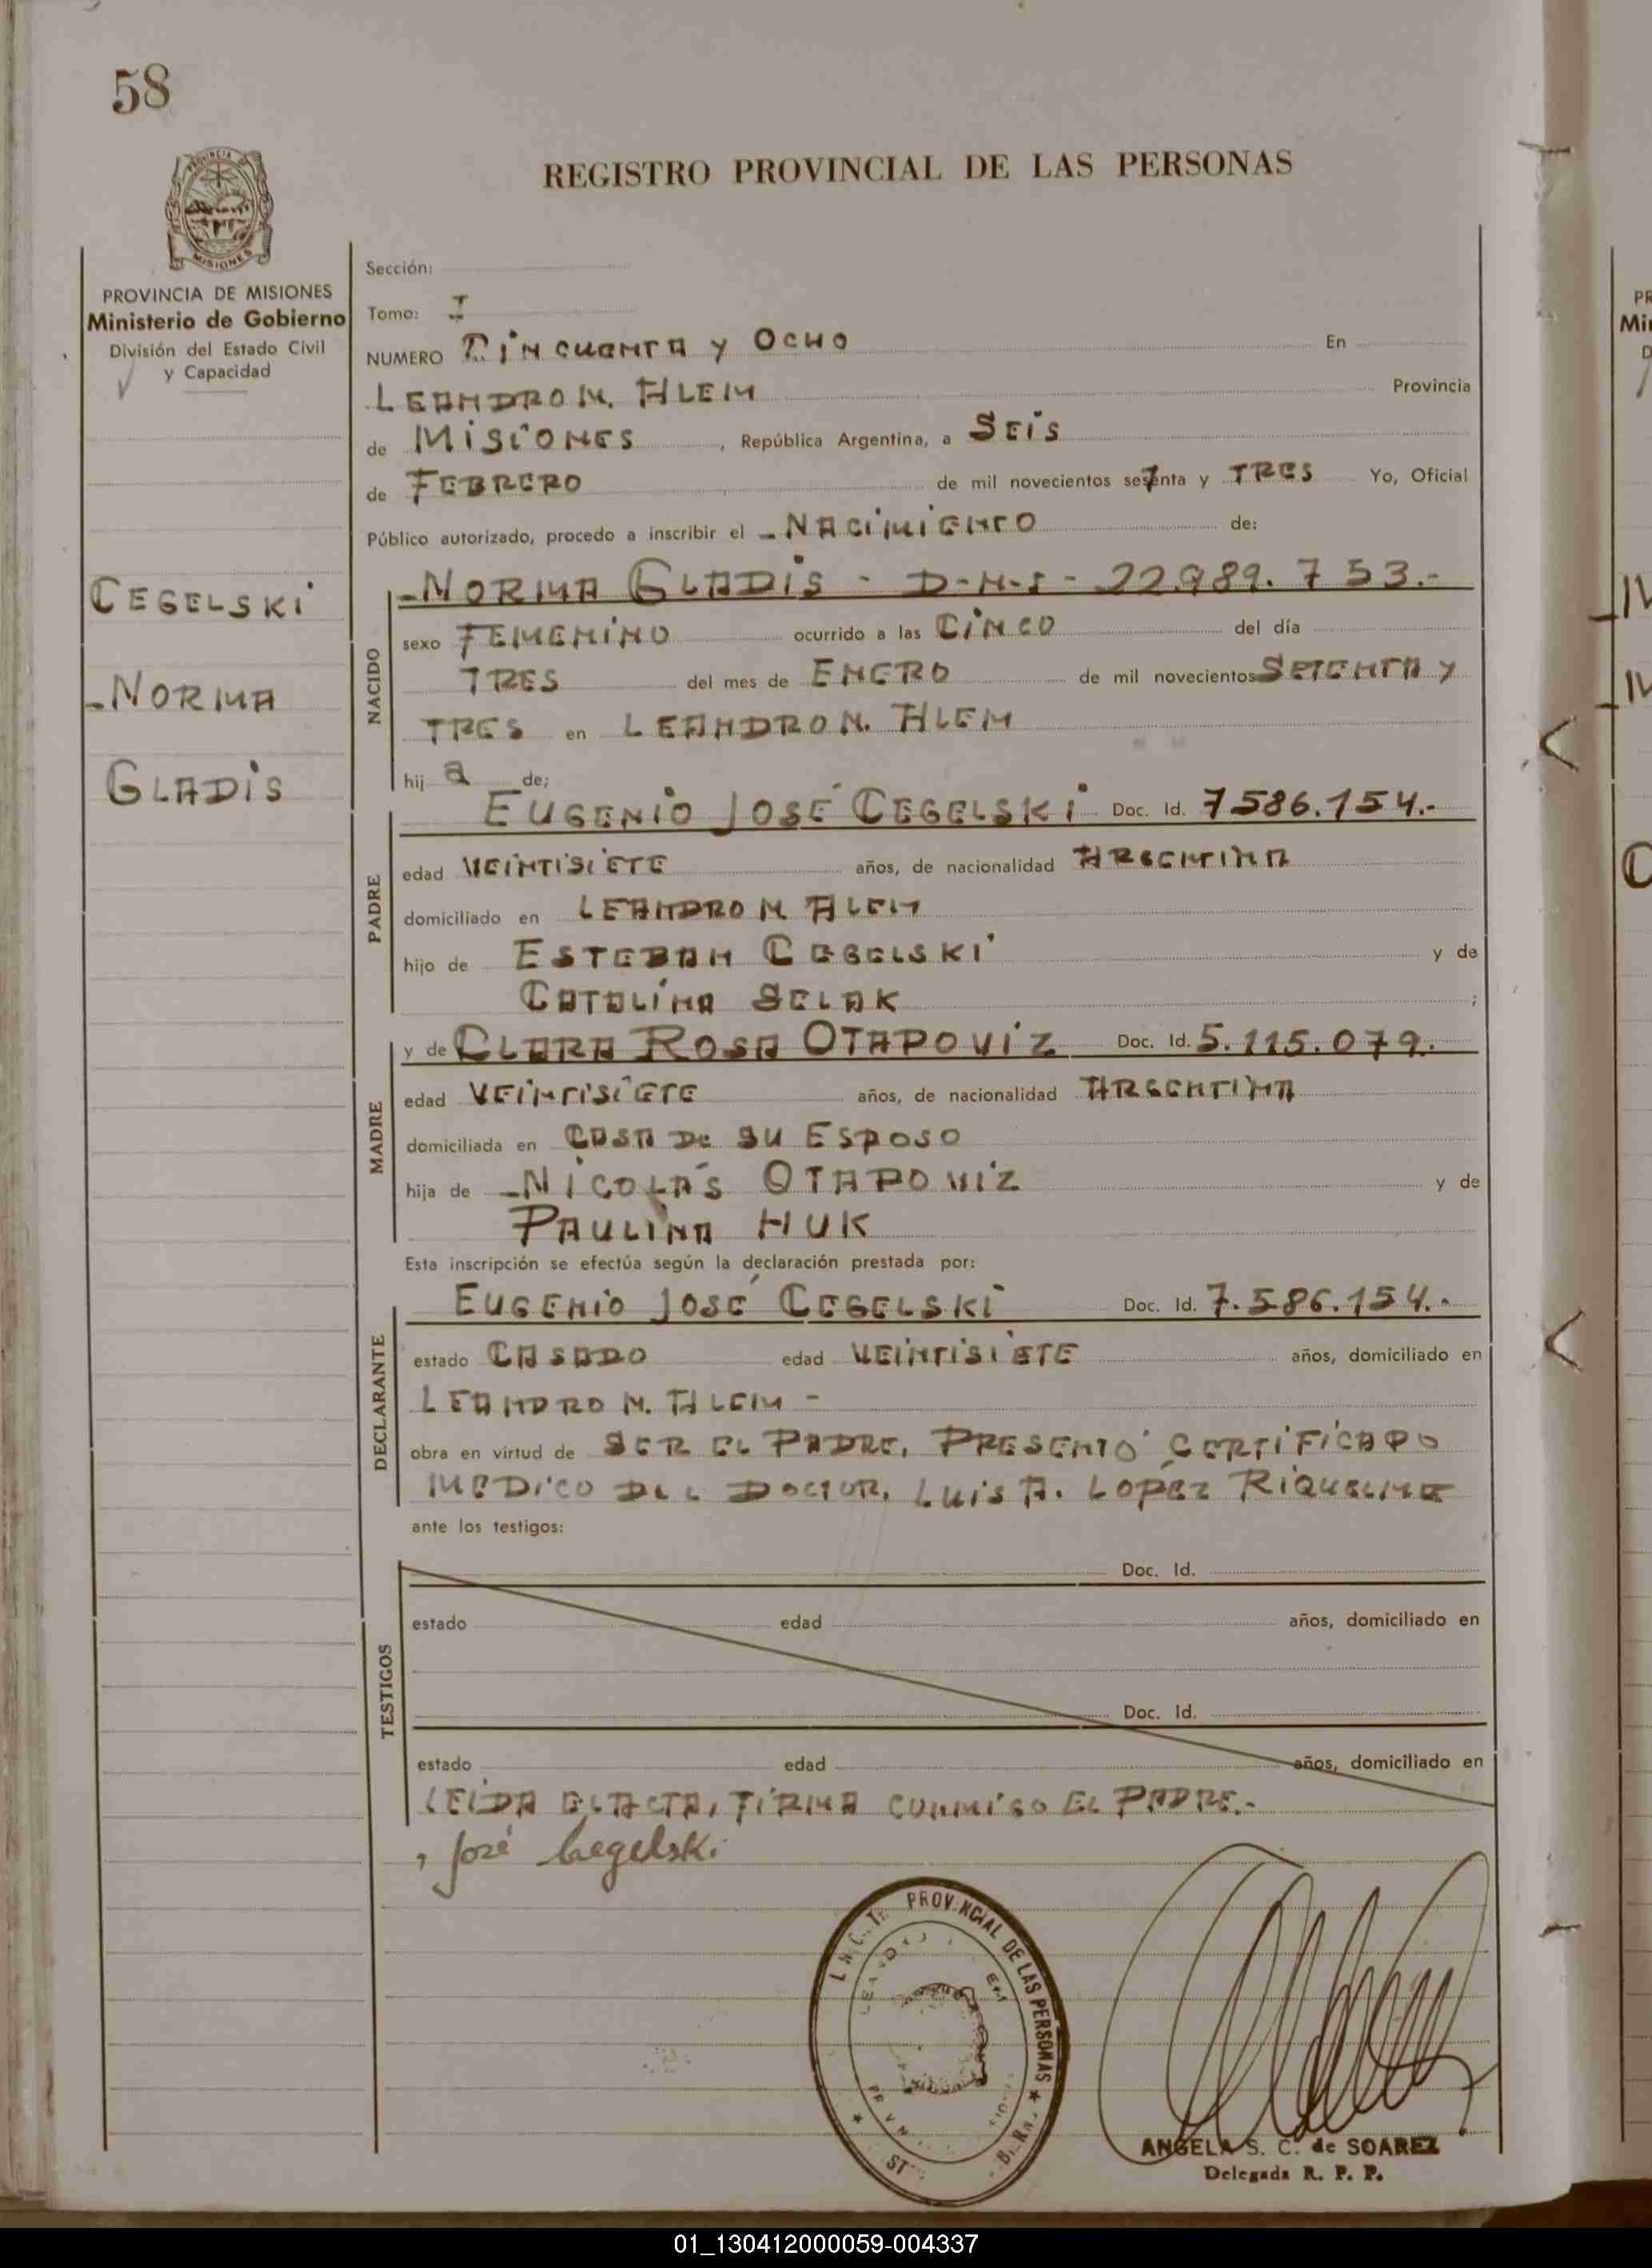 58
REGISTRO PROVINCIAL DE LAS PERSONAS
PROVINCIA DE
MISIONES
PROVINCIA DE MISIONES
Ministerio de Gobierno
División del Estado Civil
y Capacidad
CEGELSKI
-NORMA
GLADIS
Sección:
Tomo: I
NUMERO CINCUENTA Y OCHO En
LEANDRO N. ALEM Provincia
de MISIONES , República Argentina, a SEIS
de FEBRERO de mil novecientos setenta y TRES Yo, Oficial
Público autorizado, procedo a inscribir el -NACIMIENTO de:
NACIDO
-NORMA GLADIS - D-N-I - 22.989.753.-
sexo FEMENINO ocurrido a las CINCO del día
TRES del mes de ENERO de mil novecientos SETENTA Y
TRES en LEANDRO N. ALEM
hij a de;
PADRE
EUGENIO JOSÉ CEGELSKI Doc. Id. 7586.154.-
edad VEINTISIETE años, de nacionalidad ARGENTINA
domiciliado en LEANDRO N ALEM
hijo de ESTEBAN CEGELSKI y de
CATALINA SELAK ;
MADRE
y de CLARA ROSA OTAPOVIZ Doc. Id. 5.115.079.
edad VEINTISIETE años, de nacionalidad ARGENTINA
domiciliada en CASA DE SU ESPOSO
hija de -NICOLÁS OTAPOVIZ y de
PAULINA HUK
Esta inscripción se efectúa según la declaración prestada por:
DECLARANTE
EUGENIO JOSÉ CEGELSKI Doc. Id. 7.586.154.-
estado CASADO edad VEINTISIETE años, domiciliado en
LEANDRO N. ALEM -
obra en virtud de SER EL PADRE, PRESENTÓ CERTIFICADO
MEDICO DEL DOCTOR, LUIS A. LOPÉZ RIQUELME
ante los testigos:
TESTIGOS
Doc. Id.
estado edad años, domiciliado en
Doc. Id.
estado edad años, domiciliado en
LEIDA EL ACTA, FIRMA CONMIGO EL PADRE.-
José Cegelski
PROVINCIAL DE LAS PERSONAS
ANGELA S. C. de SOAREZ
Delegada R. P. P.
01_130412000059-004337